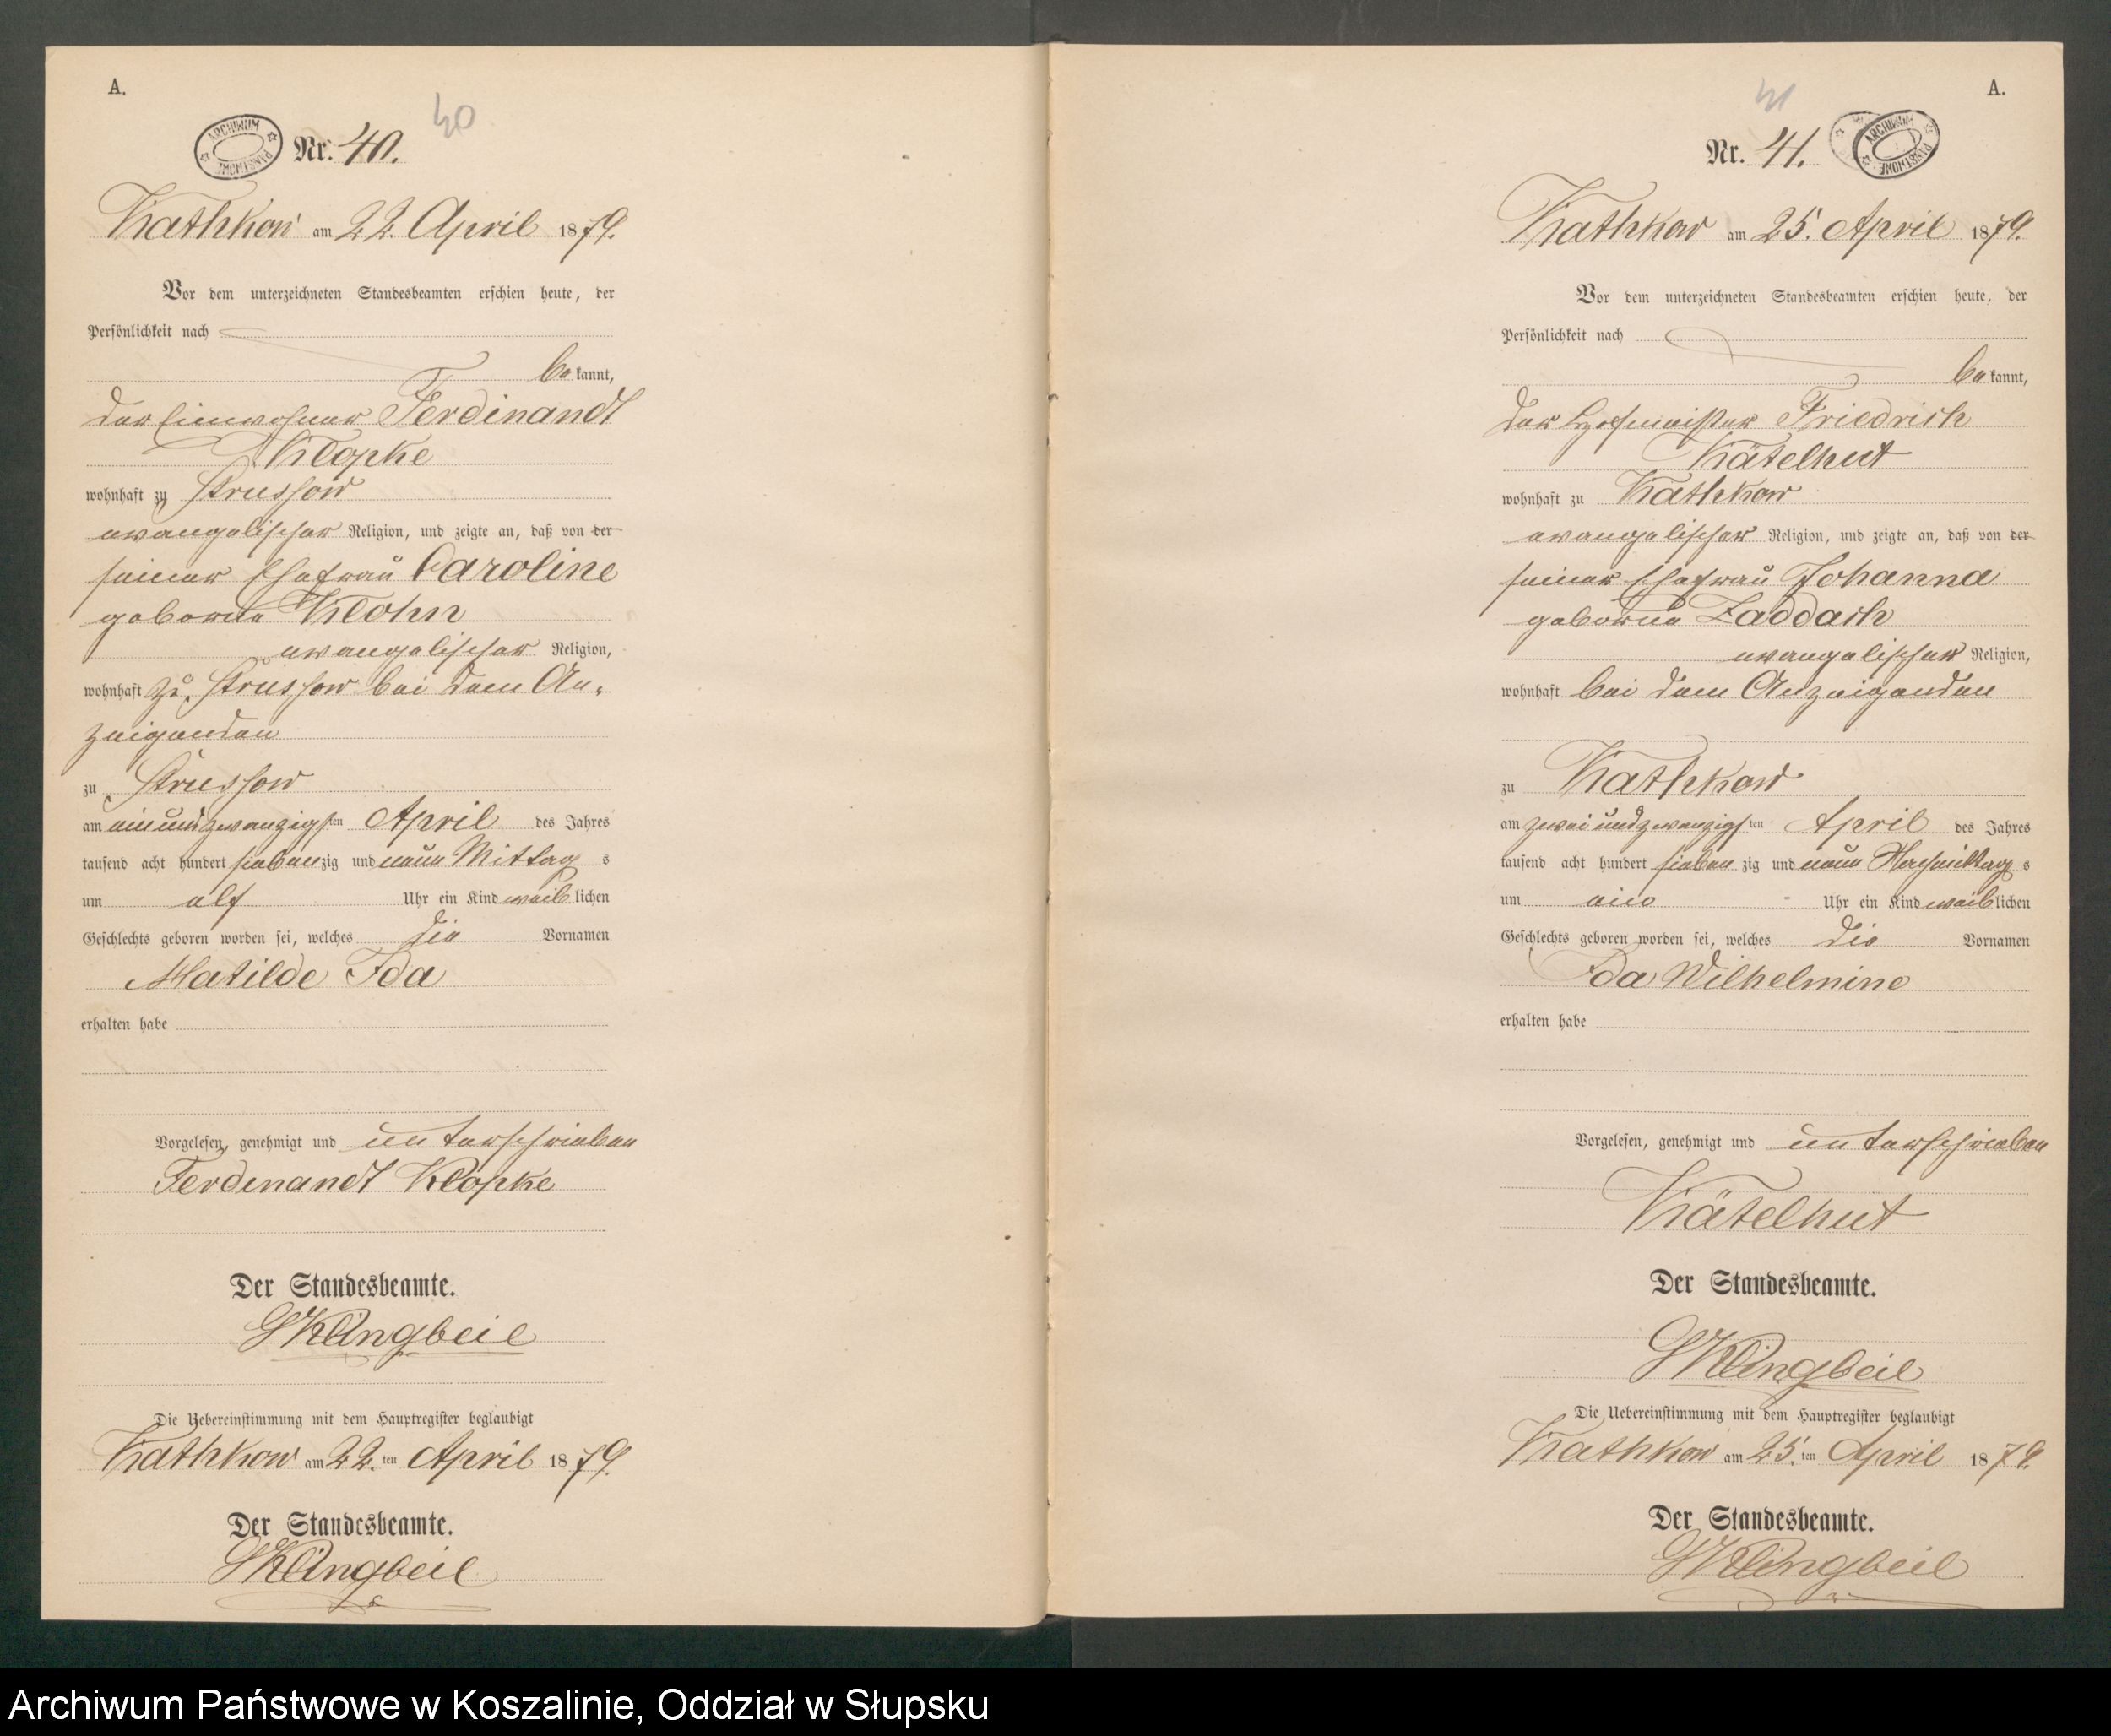 A.
40
ARCHIWUM PAŃSTWOWE
Nr. 40.
Kathkow am 22. April 1879.
Vor dem unterzeichneten Standesbeamten erschien heute, der
Persönlichkeit nach
be kannt,
der Einwohner Ferdinandt
Klopke
wohnhaft zu Strussow
evangelischer Religion, und zeigte an, daß von der
seiner Ehefrau Caroline
geborne Klohn
evangelischer Religion,
wohnhaft zu Strussow bei dem An-
zeigenden
zu Strussow
am einundzwanzigsten April des Jahres
tausend acht hundert siebenzig und neun Mittag s
um elf Uhr ein Kind weiblichen
Geschlechts geboren worden sei, welches die Vornamen
Matilde Ida
erhalten habe
Vorgelesen, genehmigt und unterschrieben
Ferdenandt Klopke
Der Standesbeamte.
Klingbeil
Die Uebereinstimmung mit dem Hauptregister beglaubigt
Kathkow am 22.ten April 1879.
Der Standesbeamte.
Klingbeil
A.
41
Nr. 41.
ARCHIWUM PAŃSTWOWE
Kathkow am 25. April 1879.
Vor dem unterzeichneten Standesbeamten erschien heute, der
Persönlichkeit nach
be kannt,
der Hofmeister Friedrich
Kätelhut
wohnhaft zu Kathkow
evangelischer Religion, und zeigte an, daß von der
seiner Ehefrau Johanna
geborne Zaddach
evangelischer Religion,
wohnhaft bei dem Anzeigenden
zu Kathkow
am zweiundzwanzigsten April des Jahres
tausend acht hundert siebenzig und neun Nachmittags
um ein Uhr ein Kind weiblichen
Geschlechts geboren worden sei, welches die Vornamen
Ida Wilhelmine
erhalten habe
Vorgelesen, genehmigt und unterschrieben
Kätelhut
Der Standesbeamte.
Klingbeil
Die Uebereinstimmung mit dem Hauptregister beglaubigt
Kathkow am 25.ten April 1879.
Der Standesbeamte.
Klingbeil
Archiwum Państwowe w Koszalinie, Oddział w Słupsku